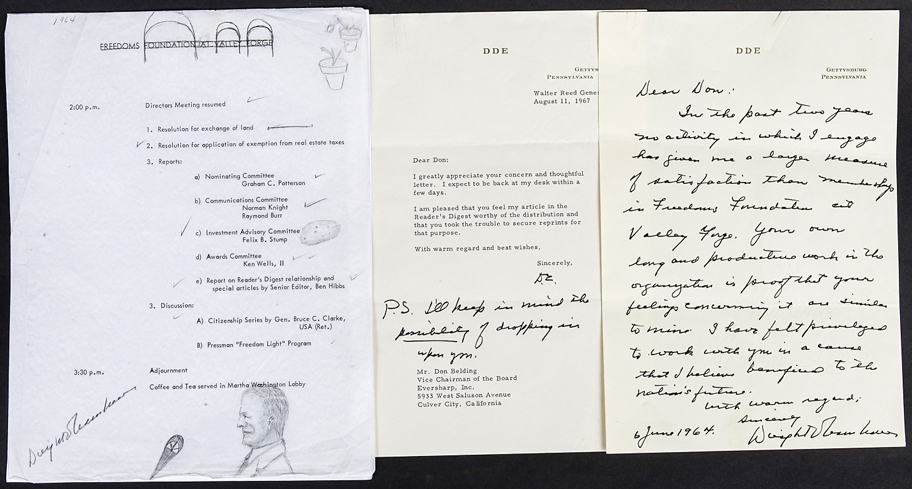 1964
FREEDOMS FOUNDATION AT VALLEY FORGE
2:00 p.m. Directors Meeting resumed
1. Resolution for exchange of land
2. Resolution for application of exemption from real estate taxes
3. Reports:
a) Nominating Committee
Graham C. Patterson
b) Communications Committee
Norman Knight
Raymond Burr
c) Investment Advisory Committee
Felix B. Stump
d) Awards Committee
Ken Wells, II
e) Report on Reader's Digest relationship and
special articles by Senior Editor, Ben Hibbs
3. Discussion:
A) Citizenship Series by Gen. Bruce C. Clarke,
USA (Ret.)
B) Pressman "Freedom Light" Program
3:30 p.m. Adjournment
Coffee and Tea served in Martha Washington Lobby
Dwight D Eisenhower
DDE
GETTYS
PENNSYLVANIA
Walter Reed Gene
August 11, 1967
Dear Don:
I greatly appreciate your concern and thoughtful
letter. I expect to be back at my desk within a
few days.
I am pleased that you feel my article in the
Reader's Digest worthy of the distribution and
that you took the trouble to secure reprints for
that purpose.
With warm regard and best wishes,
Sincerely,
D.E.
P.S. I'll keep in mind the
possibility of dropping in
upon you.
Mr. Don Belding
Vice Chairman of the Board
Eversharp, Inc.
5933 West Saluson Avenue
Culver City, California
DDE
GETTYSBURG
PENNSYLVANIA
Dear Don:
In the past two years
no activity in which I engage
has given me a larger measure
of satisfaction than membership
in Freedoms Foundation at
Valley Forge. Your own
long and productive work in the
organization is proof that your
feelings concerning it are similar
to mine. I have felt privileged
to work with you in a cause
that I believe beneficial to the
nation's future.
With warm regard,
Sincerely
6 June 1964. Dwight D Eisenhower